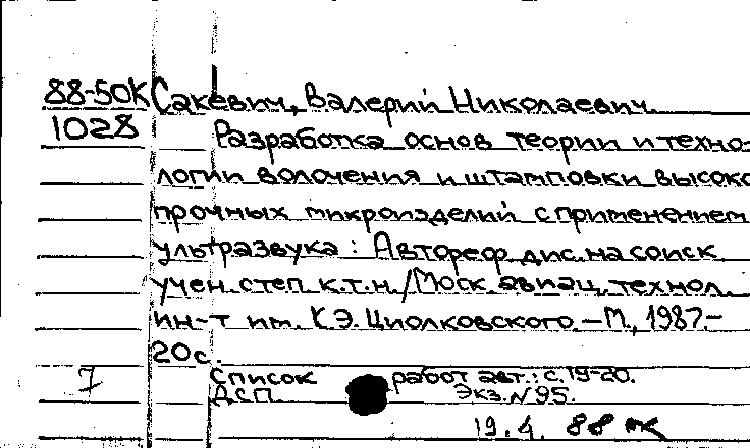 88-50К Сакевич, Валерий Николаевич.
1028 Разработка основ теории и техно-
логии волочения и штамповки высоко
прочных микроизделий с применением
ультразвука : Автореф. дис. на соиск.
учен. степ. к.т.н. / Моск. авиац. технол.
ин-т им. К.Э. Циолковского. - М., 1987-
20 с.
7 Список работ авт.: с. 19-20.
ДСП. Экз. N 95.
19. 4. 88